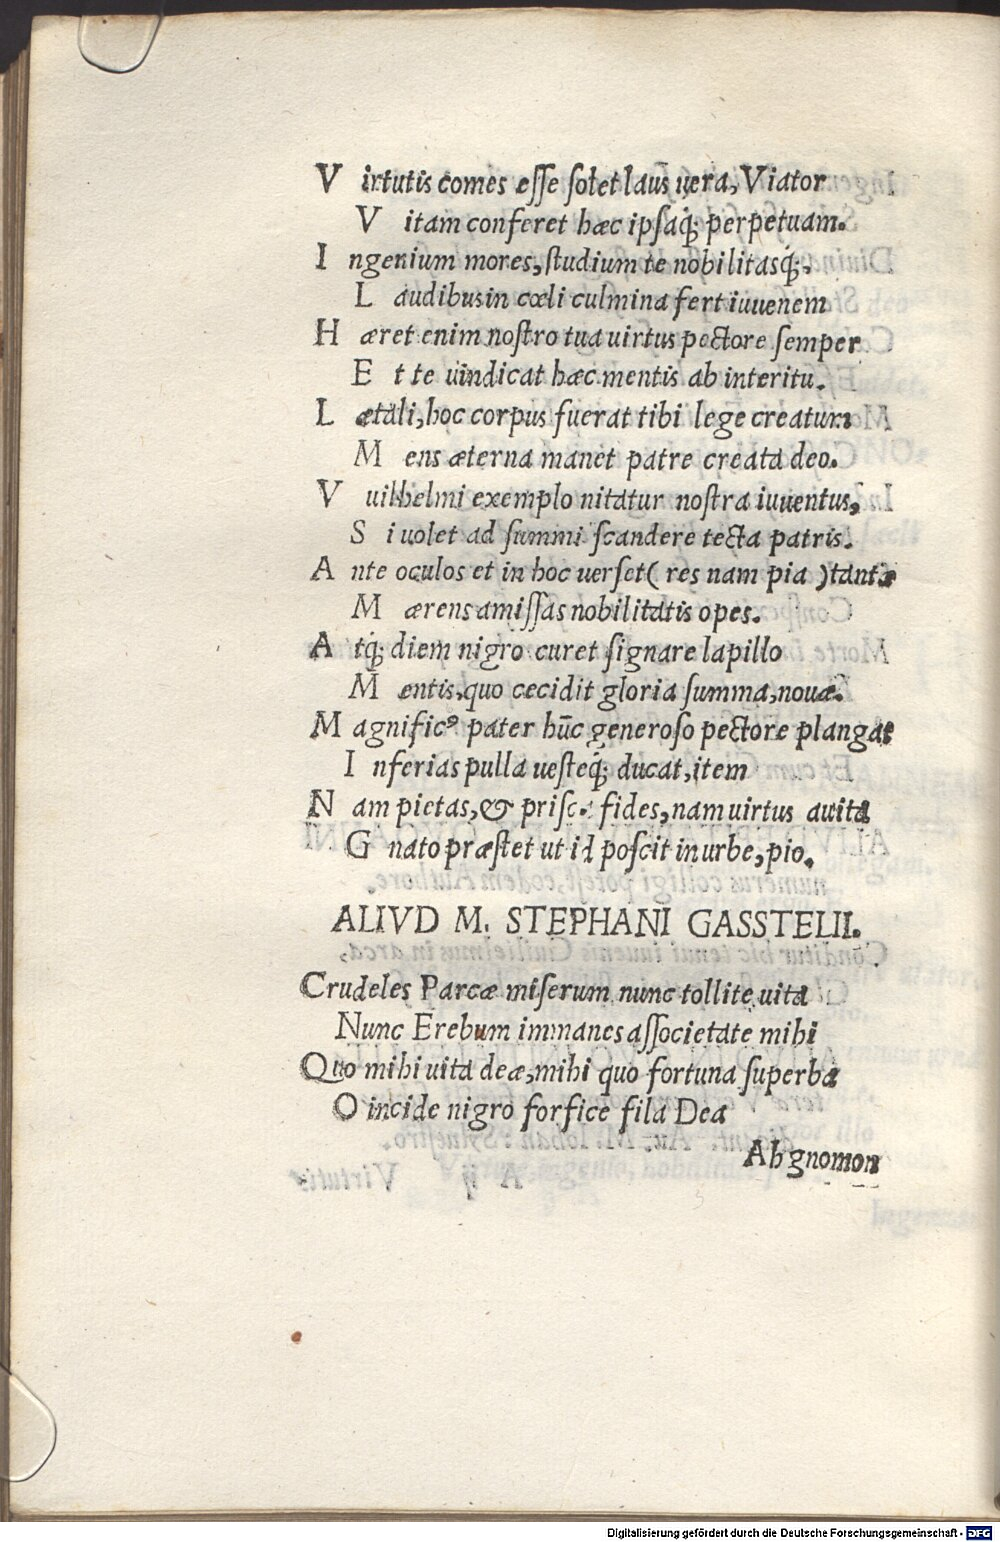 V irtutis comes eſſe ſolet laus uera, Viator
V itam conferet hæc ipſaq́; perpetuam.
I ngenium mores, ſtudium te nobilitasq́;,
L audibus in cœli culmina fert iuuenem
H æret enim noſtro tua uirtus pectore ſemper
E t te uindicat hæc mentis ab interitu.
L ætali, hoc corpus fuerat tibi lege creatum
M ens æterna manet patre creata deo.
V uilhelmi exemplo nitatur noſtra iuuentus,
S i uolet ad ſummi ſcandere tecta patris.
A nte oculos et in hoc uerſet( res nam pia )tantæ
M ærens amiſſas nobilitatis opes.
A tq́; diem nigro curet ſignare lapillo
M entis, quo cecidit gloria ſumma, nouæ.
M agnificꝰ pater hūc generoſo pectore plangat
I nferias pulla ueſteq́; ducat, item
N am pietas, & priſc. fides, nam uirtus auita
G nato præſtet ut id poſcit in urbe, pio.
ALIVD M. STEPHANI GASSTELII.
Crudeles Parcæ miſerum nunc tollite uita
Nunc Erebum immanes aſſocietate mihi
Quo mihi uita deæ, mihi quo fortuna ſuperba
O incide nigro forfice fila Dea
Ab gnomon
Digitalisierung gefördert durch die Deutsche Forschungsgemeinschaft - DFG